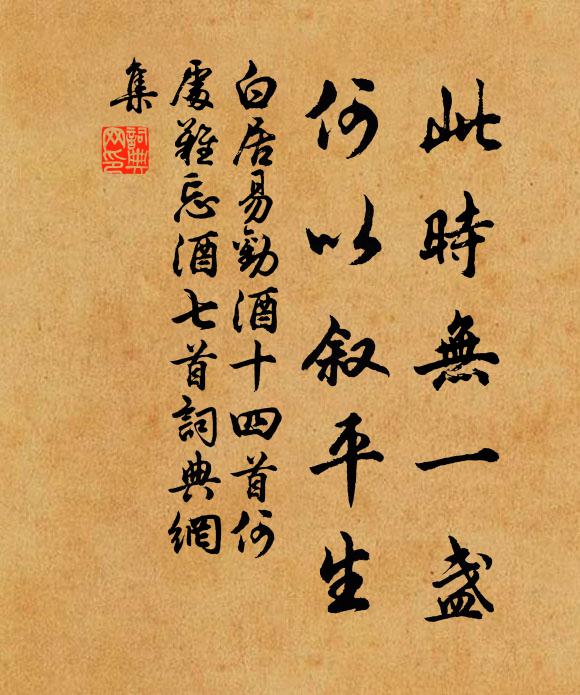 此時無一盞
何以叙平生
白居易勸酒十四首何
處難忘酒七首詞典網
集
詞典
网印